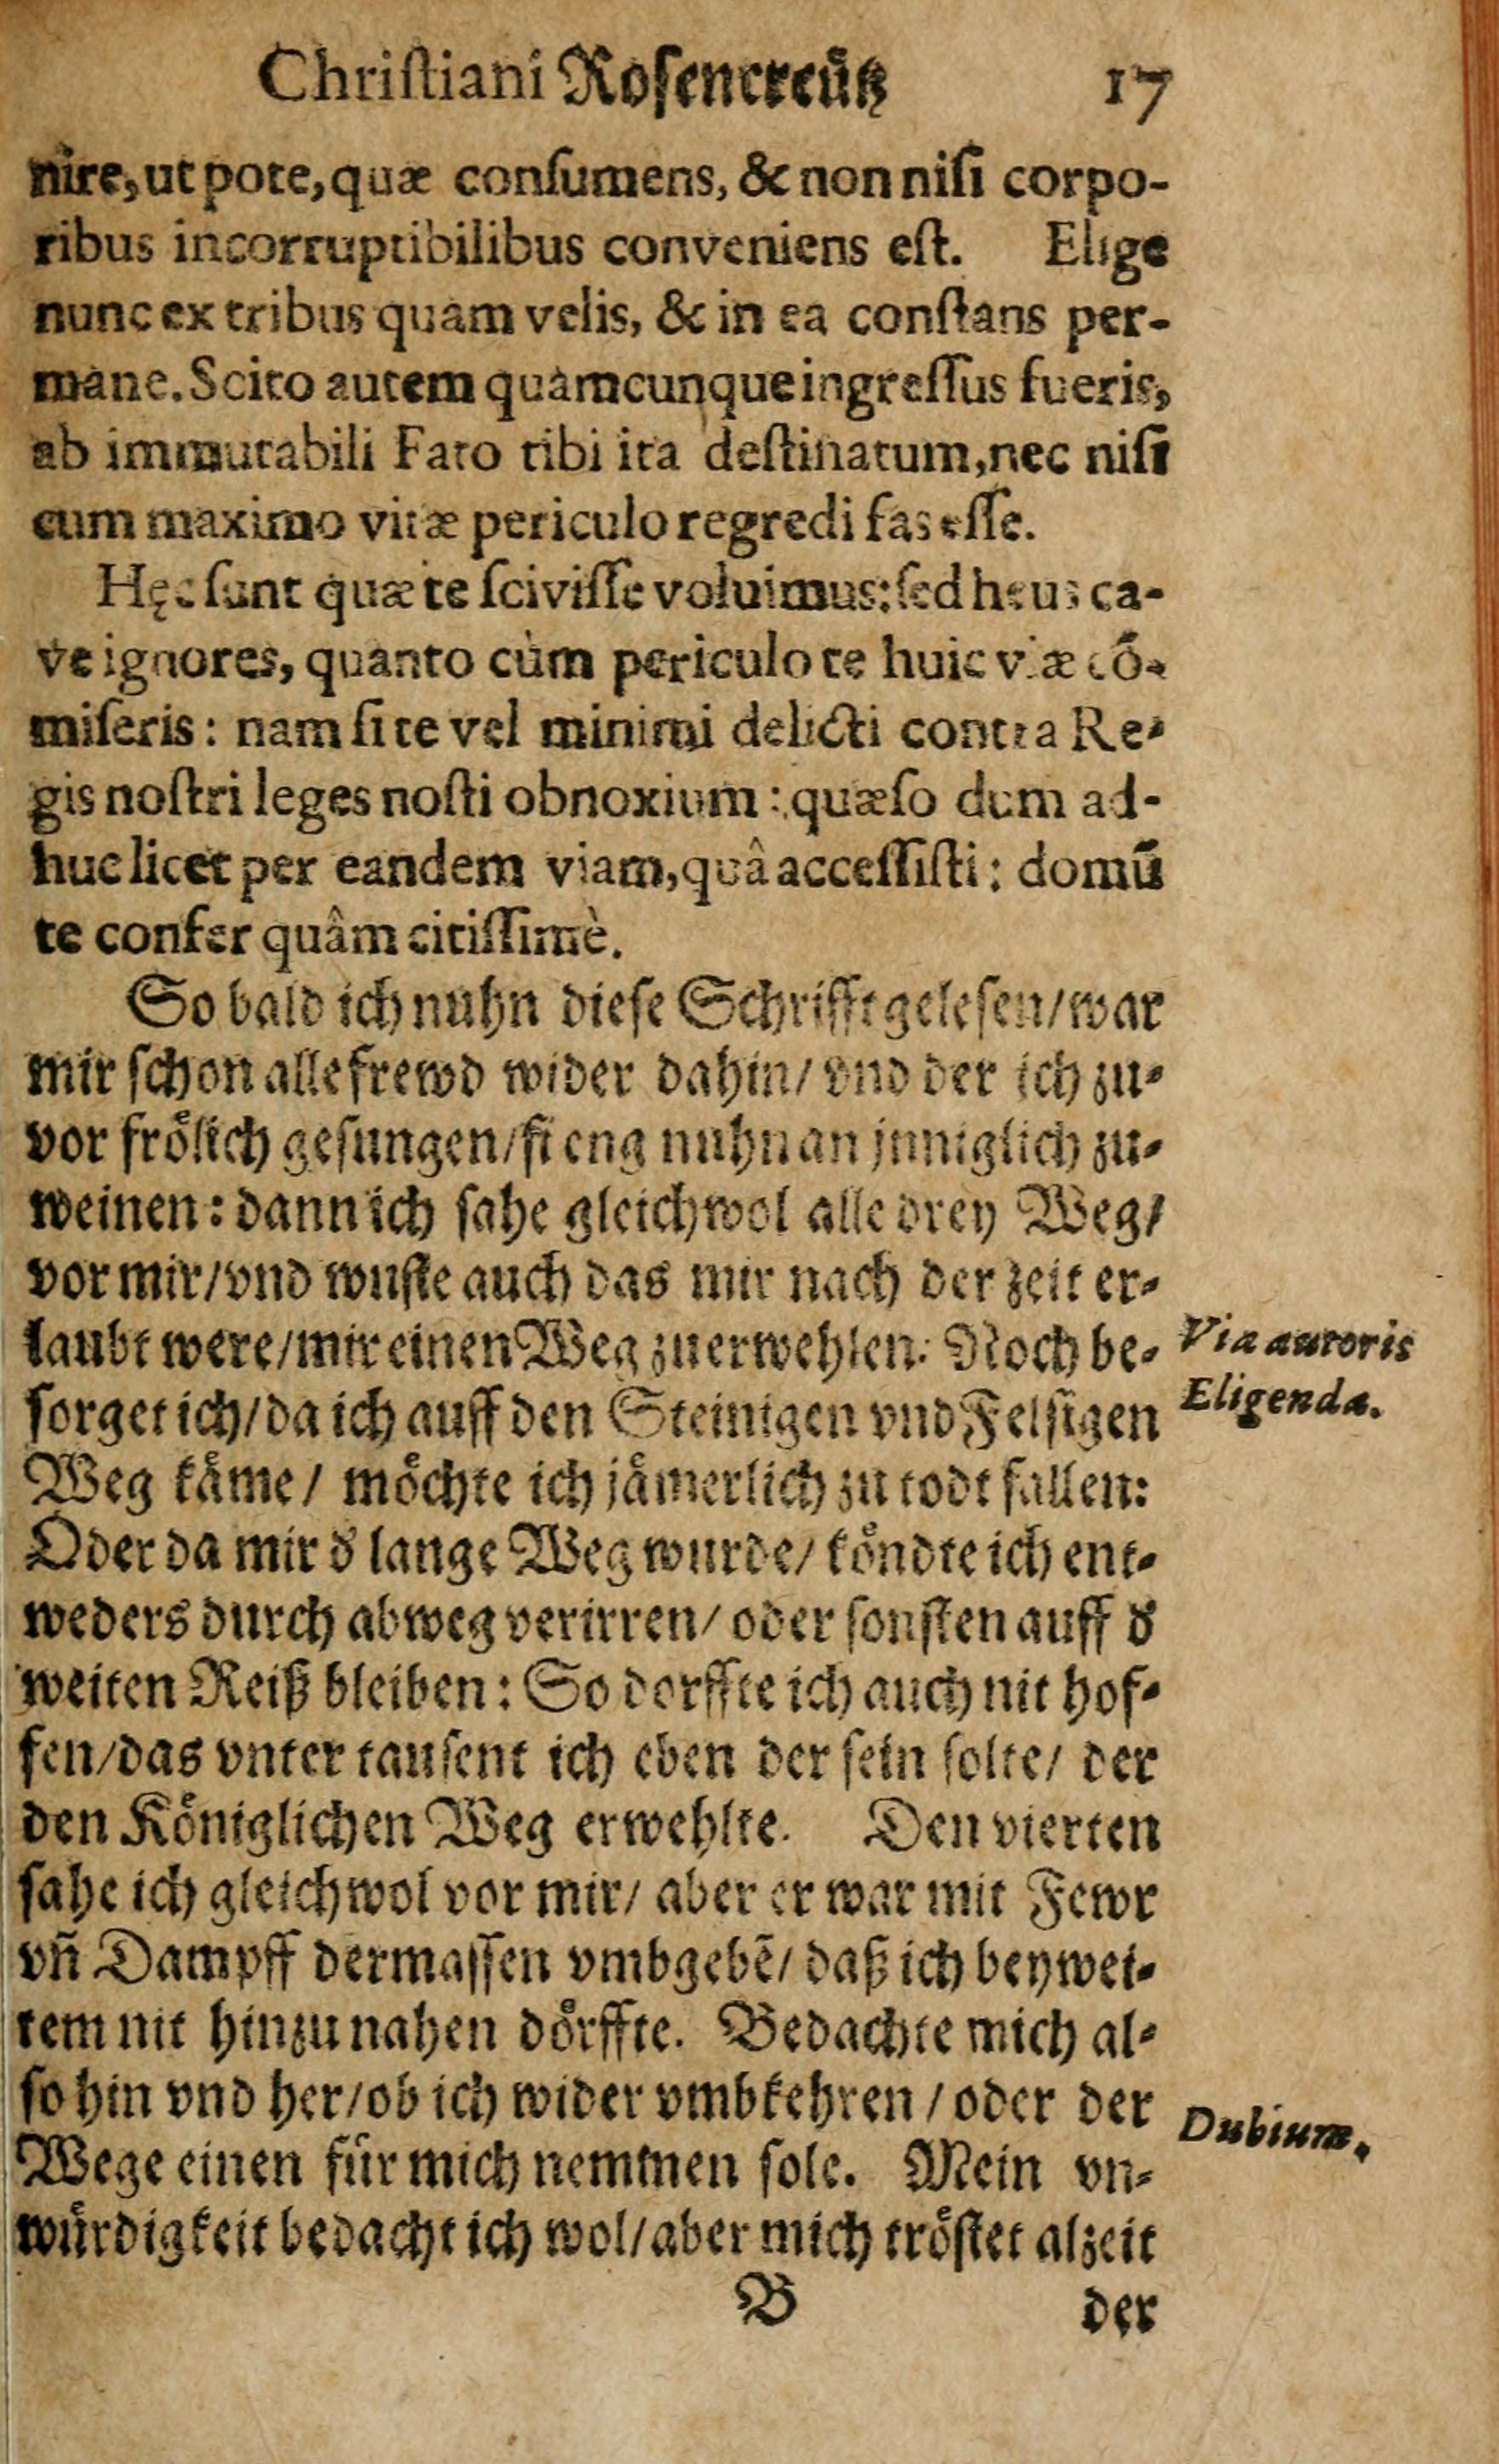 Chriſtiani Roſencreűtz 17
nire, ut pote, quæ conſumens, & non niſi corpo-
ribus incorruptibilibus conveniens eſt. Elige
nunc ex tribus quam velis, & in ea conſtans per-
mane. Scito autem quamcunque ingreſſus fueris,
ab immutabili Fato tibi ita deſtinatum, nec niſi
cum maximo vitæ periculo regredi fas eſſe.
Hęc ſunt quæ te ſciviſſe voluimus: ſed heus ca-
ve ignores, quanto cùm periculo te huic viæ cõ-
miſeris: nam ſi te vel minimi delicti contra Re-
gis noſtri leges noſti obnoxium: quæſo dum ad-
huc licet per eandem viam, quâ acceſſiſti: domũ
te confer quâm citiſſimè.
So bald ich nuhn dieſe Schrifft geleſen/ war
mir ſchon alle frewd wider dahin/ vnd der ich zu-
vor froͤlich geſungen/ fieng nuhn an jnniglich zu-
weinen: dann ich ſahe gleichwol alle drey Weg/
vor mir/ vnd wuſte auch das mir nach der zeit er-
laubt were/ mir einen Weg zuerwehlen: Noch be-
Via autoris
ſorget ich/ da ich auff den Steinigen vnd Felſigen
Eligenda.
Weg kaͤme/ moͤchte ich jaͤmerlich zu todt fallen:
Oder da mir d̕ lange Weg wurde/ koͤndte ich ent-
weders durch abweg verirren/ oder ſonſten auff d̕
weiten Reiß bleiben: So dorffte ich auch nit hof-
fen/ das vnter tauſent ich eben der ſein ſolte/ der
den Koͤniglichen Weg erwehlte. Den vierten
ſahe ich gleichwol vor mir/ aber er war mit Fewr
vñ Dampff dermaſſen vmbgebẽ/ daß ich bey wei-
tem nit hinzu nahen doͤrffte. Bedachte mich al-
ſo hin vnd her/ ob ich wider vmbkehren/ oder der
Dubium.
Wege einen fuͤr mich nemmen ſole. Mein vn-
wuͤrdigkeit bedacht ich wol/ aber mich troͤſtet alzeit
B der